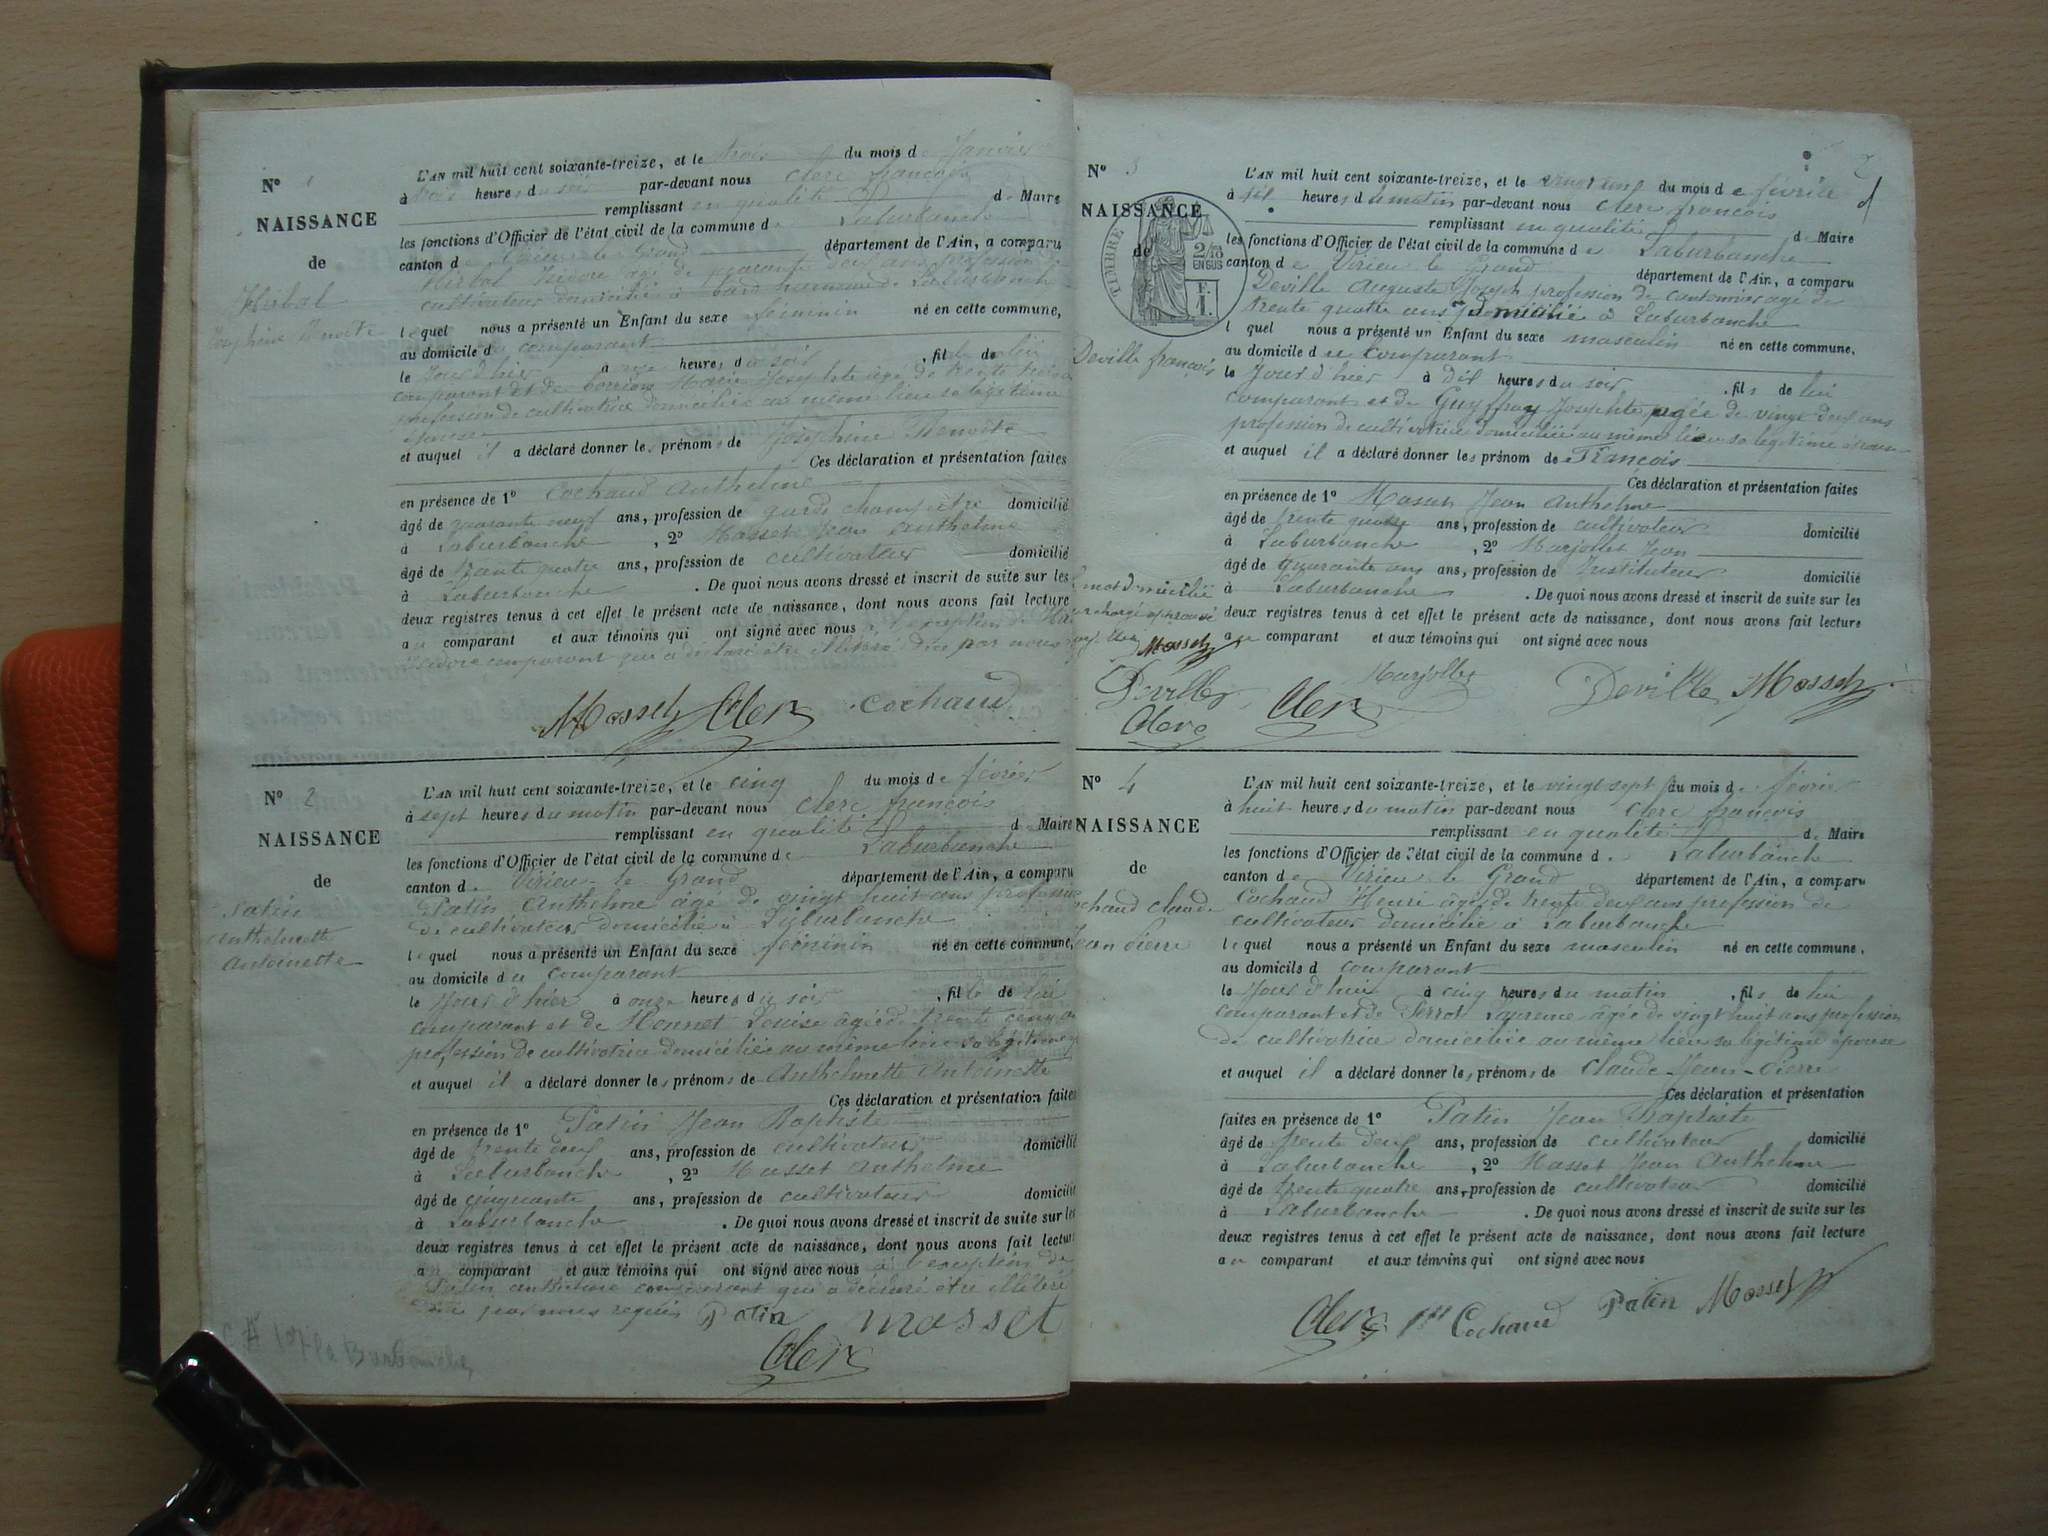 N° 1
NAISSANCE
de
Hirbal
Josephine Benoite
L'AN mil huit cent soixante-treize, et le trois du mois de Janvier
à trois heures du soir par-devant nous Clerc françois
remplissant en qualité de Maire
les fonctions d'Officier de l'état civil de la commune de Laburbanche
canton de Virieu le Grand département de l'Ain, a comparu
Hirbal Isidore âgé de quarante deux ans profession de
cultivateur domicilié à Laburbanche
lequel nous a présenté un Enfant du sexe féminin né en cette commune,
au domicile du comparant
le Jour d'hier à onze heures du soir, fille de lui
comparant et de Marie Josephte âgée de trente trois ans
profession de cultivatrice domiciliée au même lieu sa légitime
épouse
et auquel il a déclaré donner les prénoms de Joséphine Benoite
Ces déclaration et présentation faites
en présence de 1° Cochaud Anthelme
âgé de quarante neuf ans, profession de garde champêtre domicilié
à Laburbanche, 2° Masset Jean Anthelme
âgé de trente quatre ans, profession de cultivateur domicilié
à Laburbanche. De quoi nous avons dressé et inscrit de suite sur les
deux registres tenus à cet effet le présent acte de naissance, dont nous avons fait lecture
au comparant et aux témoins qui ont signé avec nous à l'exception de
Isidore comparant qui a déclaré être illétéré par nous
Masset Clerc Cochaud
N° 2
NAISSANCE
de
Patin
Anthelmette
Antoinette
L'AN mil huit cent soixante-treize, et le cinq du mois de février
à sept heures du matin par-devant nous Clerc françois
remplissant en qualité de Maire
les fonctions d'Officier de l'état civil de la commune de Laburbanche
canton de Virieu-le Grand département de l'Ain, a comparu
Patin Anthelme âgé de vingt huit ans profession
de cultivateur domicilié à Laburbanche
lequel nous a présenté un Enfant du sexe féminin né en cette commune,
au domicile du comparant
le Jour d'hier à onze heures du soir, fille de lui
comparant et de Monnet Louise âgée de trente cinq ans
profession de cultivatrice domiciliée au même lieu sa légitime
et auquel il a déclaré donner les prénoms de Anthelmette Antoinette
Ces déclaration et présentation faites
en présence de 1° Patin Jean Baptiste
âgé de trente deux ans, profession de cultivateur domicilié
à Laburbanche, 2° Masset Anthelme
âgé de cinquante ans, profession de cultivateur domicilié
à Laburbanche. De quoi nous avons dressé et inscrit de suite sur les
deux registres tenus à cet effet le présent acte de naissance, dont nous avons fait lecture
au comparant et aux témoins qui ont signé avec nous à l'exception de
Patin Anthelme comparant qui a déclaré être illétéré
par nous requis Patin masset
Clerc
N° 3
NAISSANCE
de
TIMBRE
2/10
EN SUS
F.
1.
Deville françois
L'AN mil huit cent soixante-treize, et le vingt cinq du mois de février
à dix heures du matin par-devant nous Clerc françois
remplissant en qualité de Maire
les fonctions d'Officier de l'état civil de la commune de Laburbanche
canton de Virieu le Grand département de l'Ain, a comparu
Deville Auguste Joseph profession de cantonnier agé de
trente quatre ans domicilié à Laburbanche
lequel nous a présenté un Enfant du sexe masculin né en cette commune,
au domicile du comparant
le Jour d'hier à dix heures du soir, fils de lui
comparant et de Guyffray Josephte agée de vingt deux ans
profession de cultivatrice domiciliée au même lieu sa légitime épouse
et auquel il a déclaré donner les prénom de François
Ces déclaration et présentation faites
en présence de 1° Masset Jean Anthelme
âgé de trente quatre ans, profession de cultivateur domicilié
à Laburbanche, 2° Marjollet Jean
âgé de quarante ans, profession de Instituteur domicilié
à Laburbanche. De quoi nous avons dressé et inscrit de suite sur les
deux registres tenus à cet effet le présent acte de naissance, dont nous avons fait lecture
au comparant et aux témoins qui ont signé avec nous
mot domicilié
surchargé approuvé
Masset
Deville
Clerc
Clerc Marjollet Deville Masset
N° 4
NAISSANCE
de
Cochaud Claude
Jean Pierre
L'AN mil huit cent soixante-treize, et le vingt sept du mois de février
à huit heures du matin par-devant nous Clerc françois
remplissant en qualité de Maire
les fonctions d'Officier de l'état civil de la commune de Laburbanche
canton de Virieu le Grand département de l'Ain, a comparu
Cochaud Henri âgé de trente deux ans profession de
cultivateur domicilié à Laburbanche
lequel nous a présenté un Enfant du sexe masculin né en cette commune,
au domicile d comparant
le Jour d'hui à cinq heures du matin, fils de lui
comparant et de Perrot Laurence âgée de vingt huit ans profession
de cultivatrice domiciliée au même lieu sa légitime épouse
et auquel il a déclaré donner les prénoms de Claude-Jean-Pierre
Ces déclaration et présentation
faites en présence de 1° Patin Jean Baptiste
âgé de trente deux ans, profession de cultivateur domicilié
à Laburbanche, 2° Masset Jean Anthelme
âgé de trente quatre ans, profession de cultivateur domicilié
à Laburbanche. De quoi nous avons dressé et inscrit de suite sur les
deux registres tenus à cet effet le présent acte de naissance, dont nous avons fait lecture
au comparant et aux témoins qui ont signé avec nous
Clerc Cochaud Patin Masset